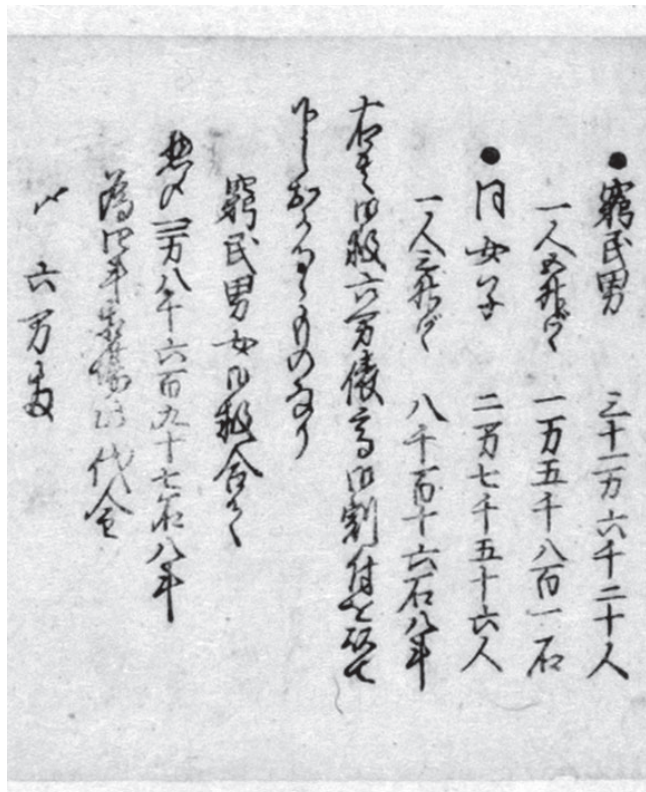 ●窮民男 三十一万六千二十人
一人五升づゝ 一万五千八百一石
●同女子 二万七千五十六人
一人三升づゝ 八千百十六石八斗
右は御救六万俵高御割付を以て
ものなり
窮民男女御救合
惣〆三万八千六百九十七石八斗
代金
〆 六万